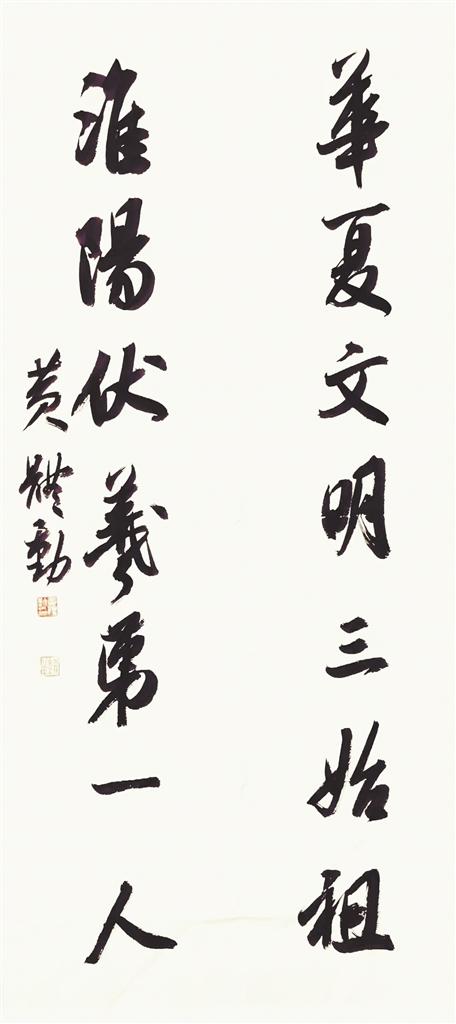 華夏文明三始祖
淮陽伏羲第一人
黄體